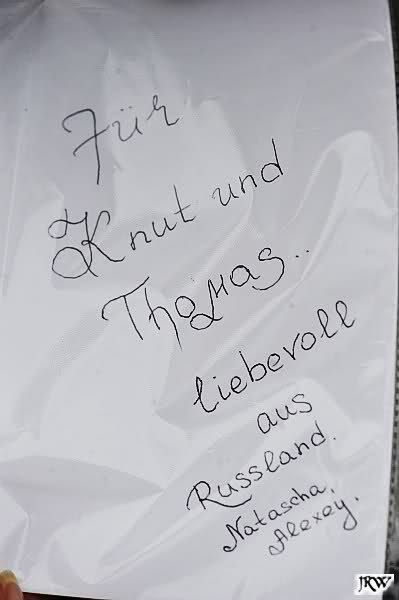 Für
Knut und
Thomas..
liebevoll
aus
Russland.
Natascha,
Alexey.
JRW